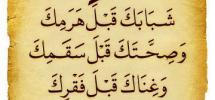 شَبَابَكَ قَبْلَ هَرَمِكَ
وَصِحَّتَكَ قَبْلَ سَقَمِكَ
وَغِنَاكَ قَبْلَ فَقْرِكَ